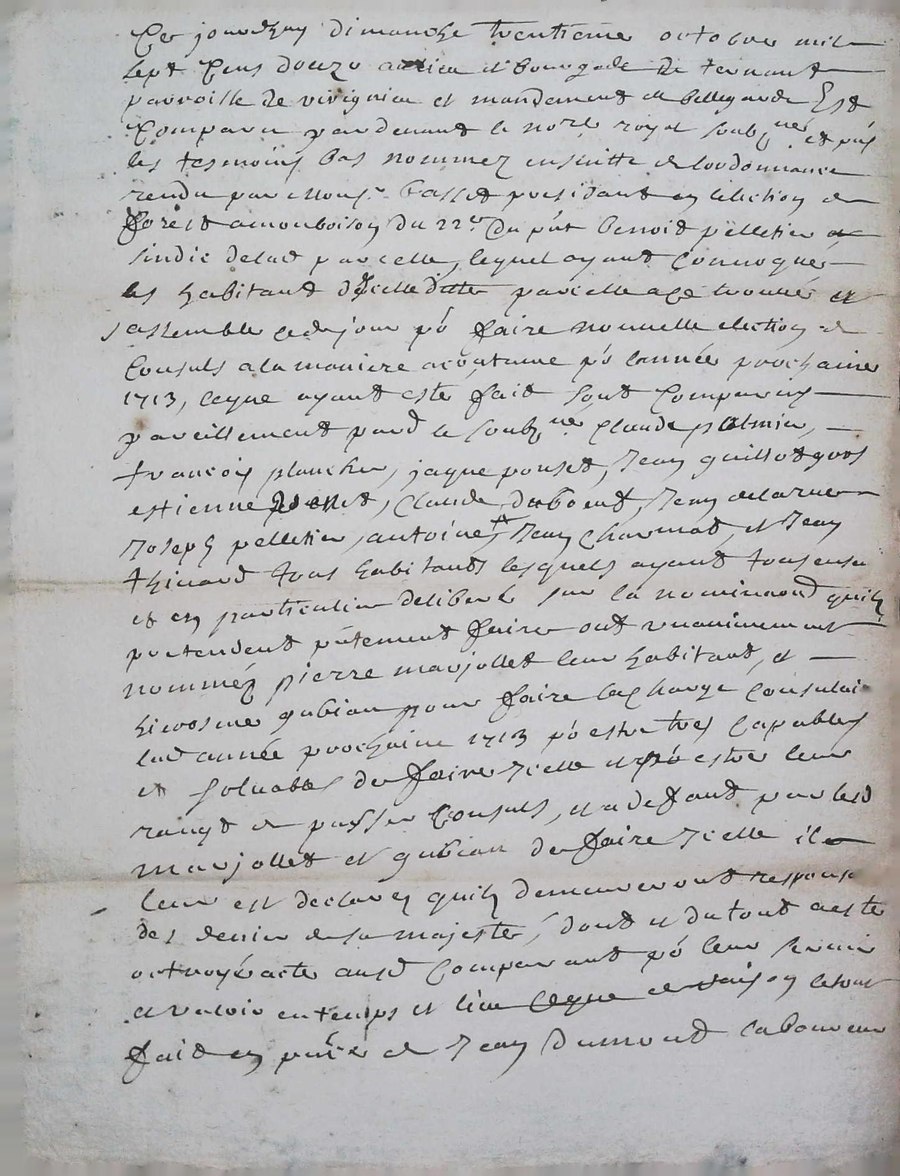 Ce jourdhuy dimanche trentieme octobre mil
sept Cens douze au lieu et bourgade de ternant
parroisse de virignieu et mandement de bellegarde Est
Comparu pardevant le nore royal soubzné et puis
les tesmoins bas nommez ensuitte de lordonnance
rendu par Monsr. basset president en lelection de
forest a monbrison du 22e du pñt benoit pelletier
sindic delad parcelle, lequel ayant Convoqués
les habitant dicelle ditte parcelle a ce trouver et
sassembler cedjour pr faire nouvelle election de
Consuls a la maniere acoutumé pr lannée prochaine
1713, ceque ayant esté fait sont Comparus
pareillement pard le soubzné Claude palmier,
francois planchu, jaque ponset, Jean guillot gros
estienne ponset, Claude duboeuf, Jean delarue
Joseph pelletier, antoine Jean Charmat, et Jean
thivard tous habitants lesquels ayant tous ensē
et en particulier deliberé sur la nominaõn quils
pretendent pñtement faire ont unanimement
nommez pierre marjollet leur habitant, et
hierosme gubian pour faire la Charge Consulai
lad année prochaine 1713 pr estre tres Capables
et solvables de faire Icelle et pr estre leur
rangt de passer Consuls, et a defaut par lesd
marjollet et gubian de faire Icelle il
leur est declarez quils demeureront respons
des denier de sa majesté, dont et du tout a esté
octroyé acte ausd Comparant pr leur servir
et valoir en temps et lieu Ceque de raison le tout
fait en pñce de Jean Dumont laboureur